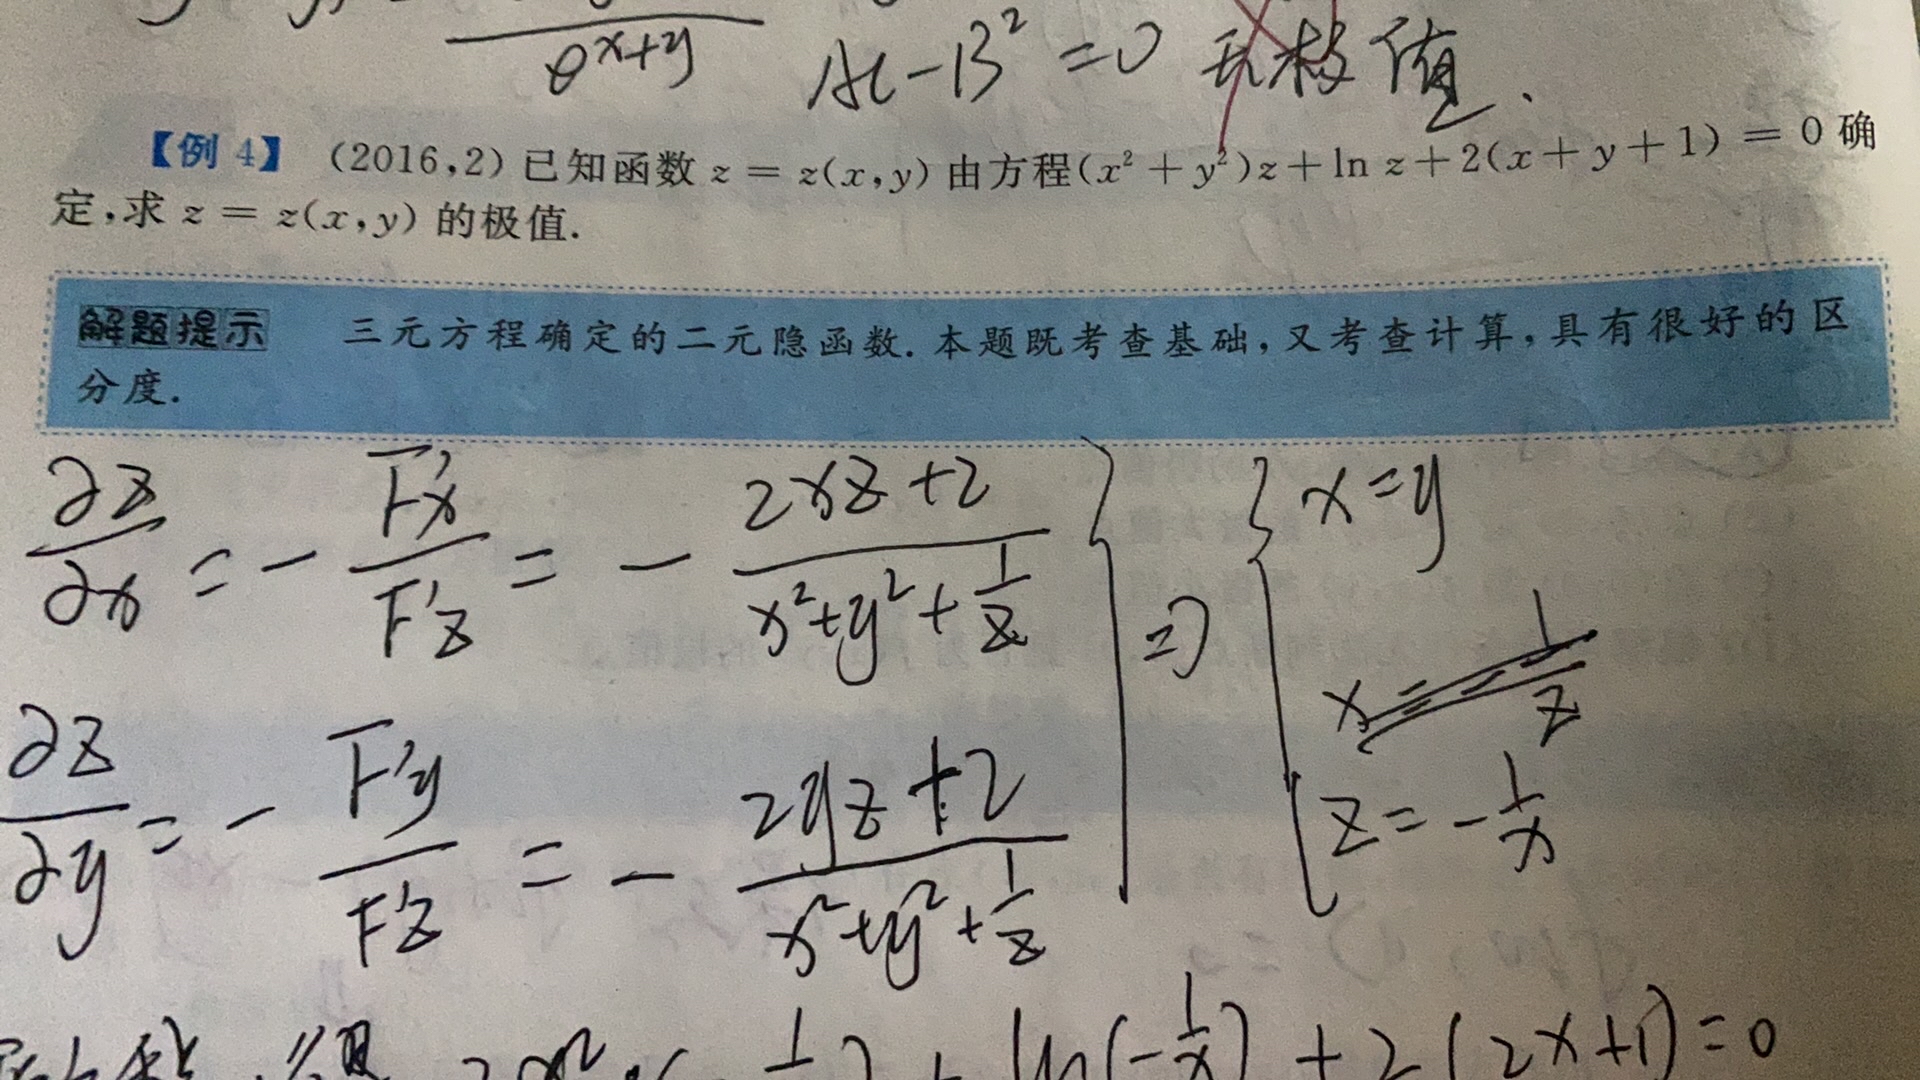 e^{x+y} AC-B²=0 无极值.
【例 4】 (2016,2)已知函数 z = z(x,y) 由方程(x²+y²)z+ln z+2(x+y+1) = 0 确
定,求 z = z(x,y) 的极值.
解题提示 三元方程确定的二元隐函数.本题既考查基础,又考查计算,具有很好的区
分度.
∂z/∂x = - F'x/F'z = - (2xz+2)/(x²+y²+1/z)
∂z/∂y = - F'y/F'z = - (2yz+2)/(x²+y²+1/z)
⇒ { x=y
z = -1/x
ln(-1/x) + 2(2x+1)=0